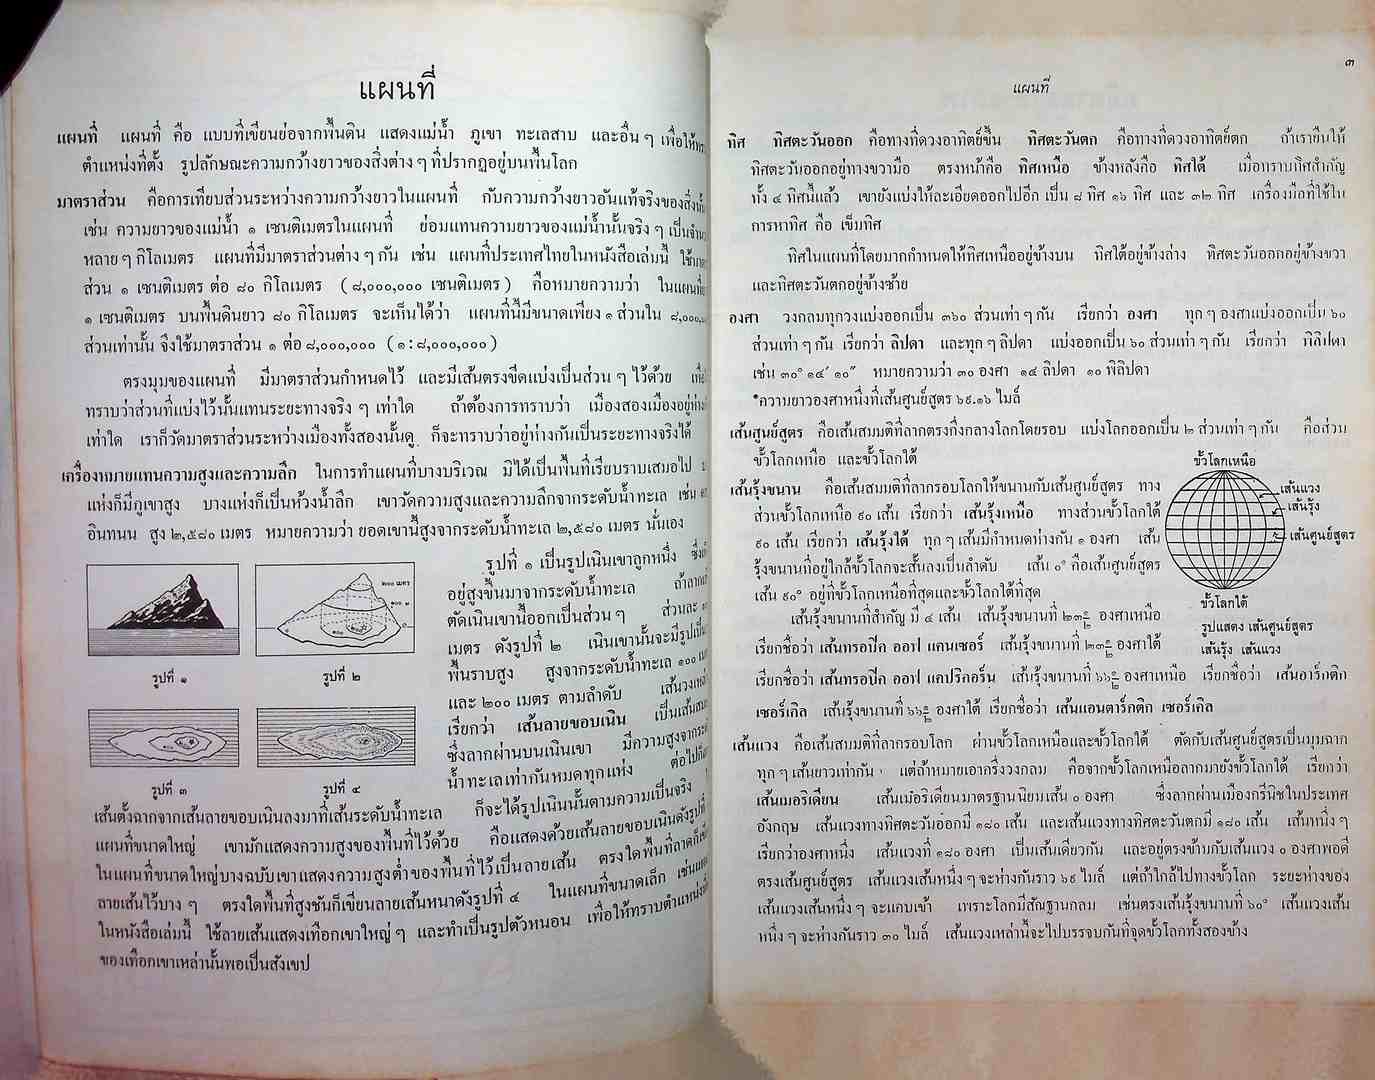 แผนที่
แผนที่ แผนที่ คือ แบบที่เขียนย่อจากพื้นดิน แสดงแม่น้ำ ภูเขา ทะเลสาบ และอื่น ๆ เพื่อให้
ตำแหน่งที่ตั้ง รูปลักษณะความกว้างยาวของสิ่งต่าง ๆ ที่ปรากฏอยู่บนพื้นโลก
มาตราส่วน คือการเทียบส่วนระหว่างความกว้างยาวในแผนที่ กับความกว้างยาวอันแท้จริงของสิ่งนั้น
เช่น ความยาวของแม่น้ำ ๑ เซนติเมตรในแผนที่ ย่อมแทนความยาวของแม่น้ำนั้นจริง ๆ เป็น
หลาย ๆ กิโลเมตร แผนที่มีมาตราส่วนต่าง ๆ กัน เช่น แผนที่ประเทศไทยในหนังสือเล่มนี้
ส่วน ๑ เซนติเมตร ต่อ ๘๐ กิโลเมตร (๘,๐๐๐,๐๐๐ เซนติเมตร) คือหมายความว่า ในแผนที่
๑ เซนติเมตร บนพื้นดินยาว ๘๐ กิโลเมตร จะเห็นได้ว่า แผนที่นี้มีขนาดเพียง ๑ ส่วนใน
ส่วนเท่านั้น จึงใช้มาตราส่วน ๑ ต่อ ๘,๐๐๐,๐๐๐ (๑:๘,๐๐๐,๐๐๐)
ตรงมุมของแผนที่ มีมาตราส่วนกำหนดไว้ และมีเส้นตรงขีดแบ่งเป็นส่วน ๆ ไว้ด้วย
ทราบว่าส่วนที่แบ่งไว้นั้นแทนระยะทางจริง ๆ เท่าใด ถ้าต้องการทราบว่า เมืองสองเมืองอยู่ห่าง
เท่าใด เราก็วัดมาตราส่วนระหว่างเมืองทั้งสองนั้นดู ก็จะทราบว่าอยู่ห่างกันเป็นระยะทางจริงได้
เครื่องหมายแทนความสูงและความลึก ในการทำแผนที่บางบริเวณ มิได้เป็นพื้นที่เรียบราบเสมอไป
แห่งก็มีภูเขาสูง บางแห่งก็เป็นห้วงน้ำลึก เขาวัดความสูงและความลึกจากระดับน้ำทะเล เช่น
อินทนน สูง ๒,๕๘๐ เมตร หมายความว่า ยอดเขานี้สูงจากระดับน้ำทะเล ๒,๕๘๐ เมตร นั่นเอง
รูปที่ ๑ เป็นรูปเนินเขาลูกหนึ่ง
อยู่สูงขึ้นมาจากระดับน้ำทะเล
ตัดเนินเขานี้ออกเป็นส่วน ๆ ส่วนละ
เมตร ดังรูปที่ ๒ เนินเขานั้นจะมีรูปเป็น
พื้นราบสูง สูงจากระดับน้ำทะเล ๑๐๐
และ ๒๐๐ เมตร ตามลำดับ
เรียกว่า เส้นลายขอบเนิน
ซึ่งลากผ่านบนเนินเขา มีความสูงจาก
น้ำทะเลเท่ากันหมดทุกแห่ง
๒๐๐ เมตร
รูปที่ ๑
รูปที่ ๒
รูปที่ ๓
รูปที่ ๔
เส้นตั้งฉากจากเส้นลายขอบเนินลงมาที่เส้นระดับน้ำทะเล ก็จะได้รูปเนินนั้นตามความเป็นจริง
แผนที่ขนาดใหญ่ เขามักแสดงความสูงของพื้นที่ไว้ด้วย คือแสดงด้วยเส้นลายขอบเนินดังรูปที่
ในแผนที่ขนาดใหญ่บางฉบับเขาแสดงความสูงต่ำของพื้นที่ไว้เป็นลายเส้น ตรงใดพื้นที่ลาดก็
ลายเส้นไว้บาง ๆ ตรงใดพื้นที่สูงชันก็เขียนลายเส้นหนาดังรูปที่ ๔ ในแผนที่ขนาดเล็ก เช่น
ในหนังสือเล่มนี้ ใช้ลายเส้นแสดงเทือกเขาใหญ่ ๆ และทำเป็นรูปตัวหนอน เพื่อให้ทราบตำแหน่ง
ของเทือกเขาเหล่านั้นพอเป็นสังเขป
๓
แผนที่
ทิศ ทิศตะวันออก คือทางที่ดวงอาทิตย์ขึ้น ทิศตะวันตก คือทางที่ดวงอาทิตย์ตก ถ้าเรายืนให้
ทิศตะวันออกอยู่ทางขวามือ ตรงหน้าคือ ทิศเหนือ ข้างหลังคือ ทิศใต้ เมื่อทราบทิศสำคัญ
ทั้ง ๔ ทิศนี้แล้ว เขายังแบ่งให้ละเอียดออกไปอีก เป็น ๘ ทิศ ๑๖ ทิศ และ ๓๒ ทิศ เครื่องมือที่ใช้ใน
การหาทิศ คือ เข็มทิศ
ทิศในแผนที่โดยมากกำหนดให้ทิศเหนืออยู่ข้างบน ทิศใต้อยู่ข้างล่าง ทิศตะวันออกอยู่ข้างขวา
และทิศตะวันตกอยู่ข้างซ้าย
องศา วงกลมทุกวงแบ่งออกเป็น ๓๖๐ ส่วนเท่า ๆ กัน เรียกว่า องศา ทุก ๆ องศาแบ่งออกเป็น ๖๐
ส่วนเท่า ๆ กัน เรียกว่า ลิปดา และทุก ๆ ลิปดา แบ่งออกเป็น ๖๐ ส่วนเท่า ๆ กัน เรียกว่า พิลิปดา
เช่น ๓๐° ๑๔′ ๑๐″ หมายความว่า ๓๐ องศา ๑๔ ลิปดา ๑๐ พิลิปดา
*ความยาวองศาหนึ่งที่เส้นศูนย์สูตร ๖๙.๑๖ ไมล์
เส้นศูนย์สูตร คือเส้นสมมติที่ลากตรงกึ่งกลางโลกโดยรอบ แบ่งโลกออกเป็น ๒ ส่วนเท่า ๆ กัน คือส่วน
ขั้วโลกเหนือ และขั้วโลกใต้
เส้นรุ้งขนาน คือเส้นสมมติที่ลากรอบโลกให้ขนานกับเส้นศูนย์สูตร ทาง
ส่วนขั้วโลกเหนือ ๙๐ เส้น เรียกว่า เส้นรุ้งเหนือ ทางส่วนขั้วโลกใต้
๙๐ เส้น เรียกว่า เส้นรุ้งใต้ ทุก ๆ เส้นมีกำหนดห่างกัน ๑ องศา เส้น
รุ้งขนานที่อยู่ใกล้ขั้วโลกจะสั้นลงเป็นลำดับ เส้น ๐° คือเส้นศูนย์สูตร
เส้น ๙๐° อยู่ที่ขั้วโลกเหนือที่สุดและขั้วโลกใต้ที่สุด
ขั้วโลกเหนือ
เส้นแวง
เส้นรุ้ง
เส้นศูนย์สูตร
ขั้วโลกใต้
รูปแสดง เส้นศูนย์สูตร
เส้นรุ้ง เส้นแวง
เส้นรุ้งขนานที่สำคัญ มี ๔ เส้น เส้นรุ้งขนานที่ ๒๓½ องศาเหนือ
เรียกชื่อว่า เส้นทรอปิค ออฟ แคนเซอร์ เส้นรุ้งขนานที่ ๒๓½ องศาใต้
เรียกชื่อว่า เส้นทรอปิค ออฟ แคปริคอร์น เส้นรุ้งขนานที่ ๖๖½ องศาเหนือ เรียกชื่อว่า เส้นอาร์กติก
เซอร์เกิล เส้นรุ้งขนานที่ ๖๖½ องศาใต้ เรียกชื่อว่า เส้นแอนตาร์กติก เซอร์เกิล
เส้นแวง คือเส้นสมมติที่ลากรอบโลก ผ่านขั้วโลกเหนือและขั้วโลกใต้ ตัดกับเส้นศูนย์สูตรเป็นมุมฉาก
ทุก ๆ เส้นยาวเท่ากัน แต่ถ้าหมายเอากึ่งวงกลม คือจากขั้วโลกเหนือลากมายังขั้วโลกใต้ เรียกว่า
เส้นเมอริเดียน เส้นเมอริเดียนมาตรฐานนิยมเส้น ๐ องศา ซึ่งลากผ่านเมืองกรีนิชในประเทศ
อังกฤษ เส้นแวงทางทิศตะวันออกมี ๑๘๐ เส้น และเส้นแวงทางทิศตะวันตกมี ๑๘๐ เส้น เส้นหนึ่ง ๆ
เรียกว่าองศาหนึ่ง เส้นแวงที่ ๑๘๐ องศา เป็นเส้นเดียวกัน และอยู่ตรงข้ามกับเส้นแวง ๐ องศาพอดี
ตรงเส้นศูนย์สูตร เส้นแวงเส้นหนึ่ง ๆ จะห่างกันราว ๖๙ ไมล์ แต่ถ้าใกล้ไปทางขั้วโลก ระยะห่างของ
เส้นแวงเส้นหนึ่ง ๆ จะแคบเข้า เพราะโลกมีสัณฐานกลม เช่นตรงเส้นรุ้งขนานที่ ๖๐° เส้นแวงเส้น
หนึ่ง ๆ จะห่างกันราว ๓๐ ไมล์ เส้นแวงเหล่านี้จะไปบรรจบกันที่จุดขั้วโลกทั้งสองข้าง